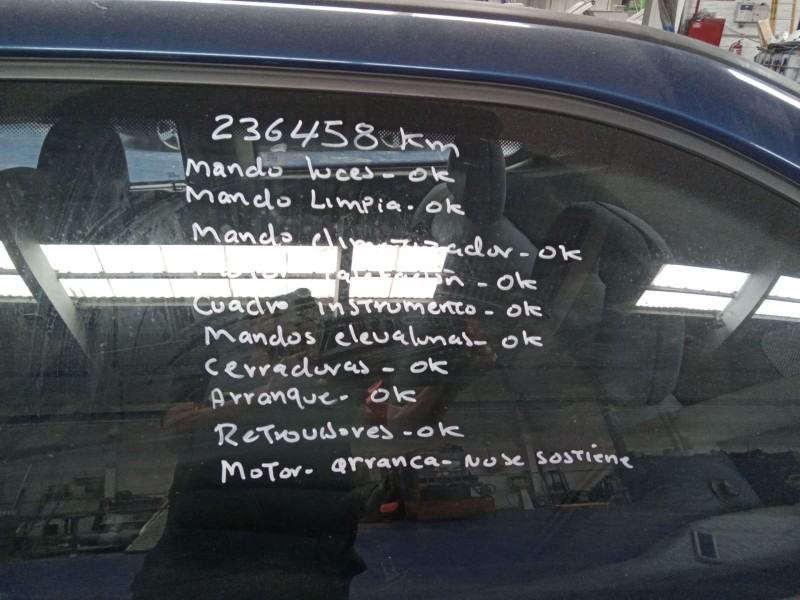 236458 km
Mando luces - ok
Mando Limpia - ok
Mando climatizador - ok
Motor calefacción - ok
Cuadro instrumento - ok
Mandos elevalunas - ok
Cerraduras - ok
Arranque - ok
Retrovisores - ok
Motor - arranca - no se sostiene